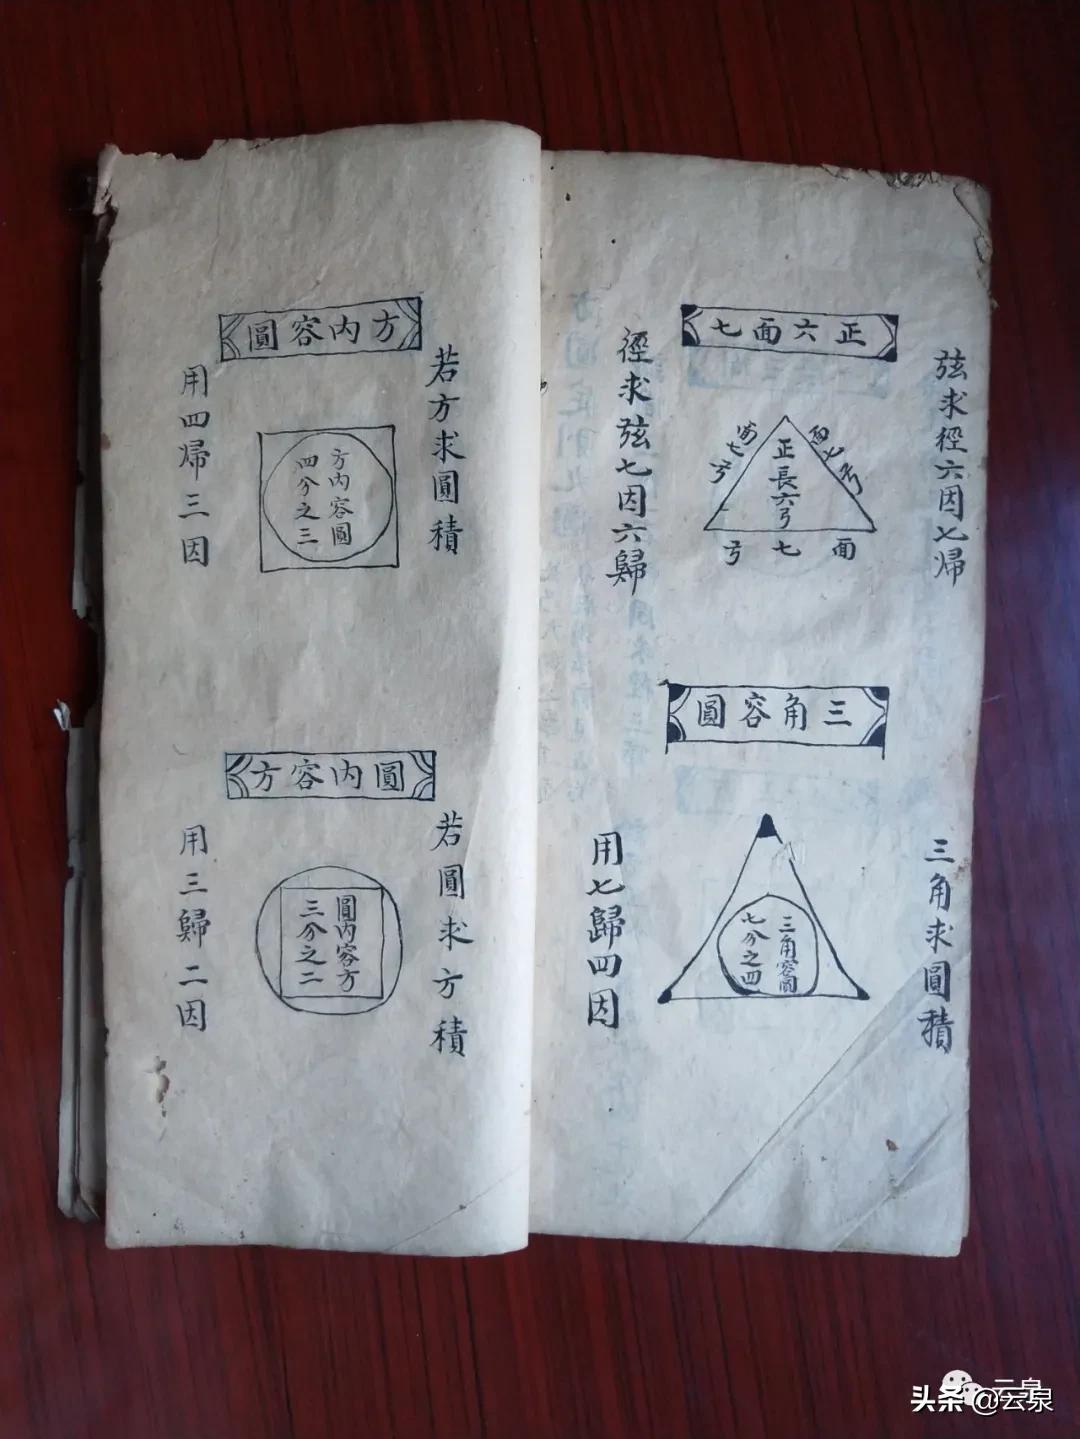 正六面七
弦求徑六因七歸
面七弓
正長六弓
面七弓
面七弓
徑求弦七因六歸
三角容圓
三角求圓積
三角容圓
七分之四
用七歸四因
方內容圓
若方求圓積
方內容圓
四分之三
用四歸三因
圓內容方
若圓求方積
圓內容方
三分之二
用三歸二因
云泉
头条@云泉